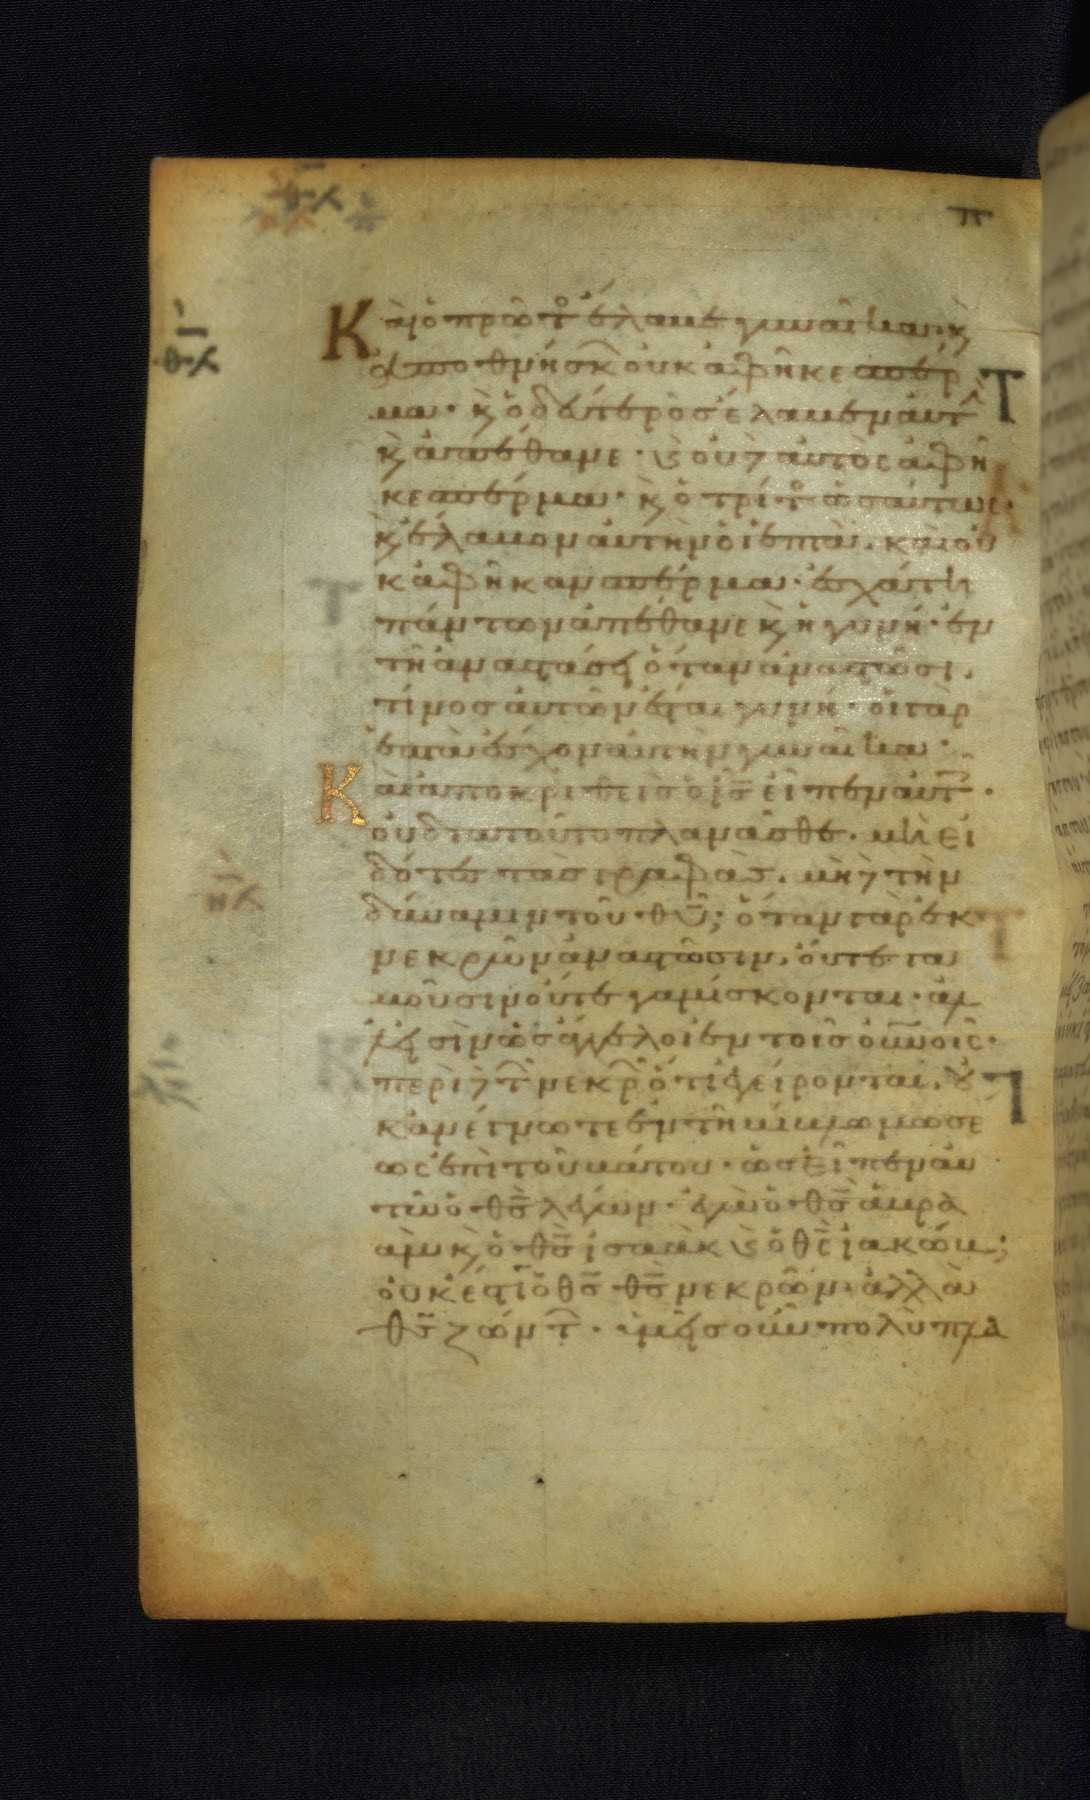 Καὶ ὁ πρῶτο ἔλαβε γυναῖκα· κ
ἀποθνήσκ οὐκ ἀφῆκε σπέρ
μα· κ ὁ δεύτερος ἔλαβεν αὐτ
κ ἀπέθανε· κ οὐδ αὐτὸς ἀφῆ
κε σπέρμα· κ ὁ τρίτο ὡσαύτως·
κ ἔλαβον αὐτὴν οἱ ἑπτὰ. καὶ οὐ
κ ἀφῆκαν σπέρμα· ἐσχάτη
πάντων ἀπέθανε κ ἡ γυνή· ἐν
τῆ ἀναστάσει ὅταν ἀναστῶσι.
τίνος αὐτῶν ἔσται γυνή· οἱ γὰρ
ἑπτὰ ἔσχον αὐτὴν γυναῖκα·
Καὶ ἀποκριθεὶς ὁ ις εἶπεν αὐτ·
οὐ διὰ τοῦτο πλανᾶσθε. μὴ εἰ
δότες τὰς γραφάς. μηδ τὴν
δύναμιν τοῦ θυ; ὅταν γὰρ ἐκ
νεκρῶν ἀναστῶσιν. οὔτε γα
μοῦσιν οὔτε γαμίσκονται· ἀλ
λ εἰσὶν ὡς ἄγγελοι ἐν τοῖς ουνοις·
περὶ δ τ νεκρ ὅτι ἐγείρονται. οὐ
κ ἀνέγνωτε ἐν τῆ βίβλω μωσέ
ως ἐπὶ τοῦ βάτου· ὡς εἶπεν αὐ
τῶ ὁ θς λέγων· ἐγὼ ὁ θς ἀβρα
ὰμ κ ὁ θς ἰσαὰκ κ ὁ θς ἰακώβ;
οὐκ ἔστιν ὁ θς θς νεκρῶν· ἀλλὰ
θς ζώντ· ὑμεῖς οὖν πολὺ πλα